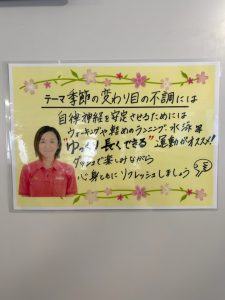 テーマ 季節の変わり目の不調には
自律神経を安定させるためには
ウォーキングや軽めのランニング、水泳等
"ゆっくり長くできる"運動がオススメ!!
ダッシュで楽しみながら
心身ともにリフレッシュしましょう